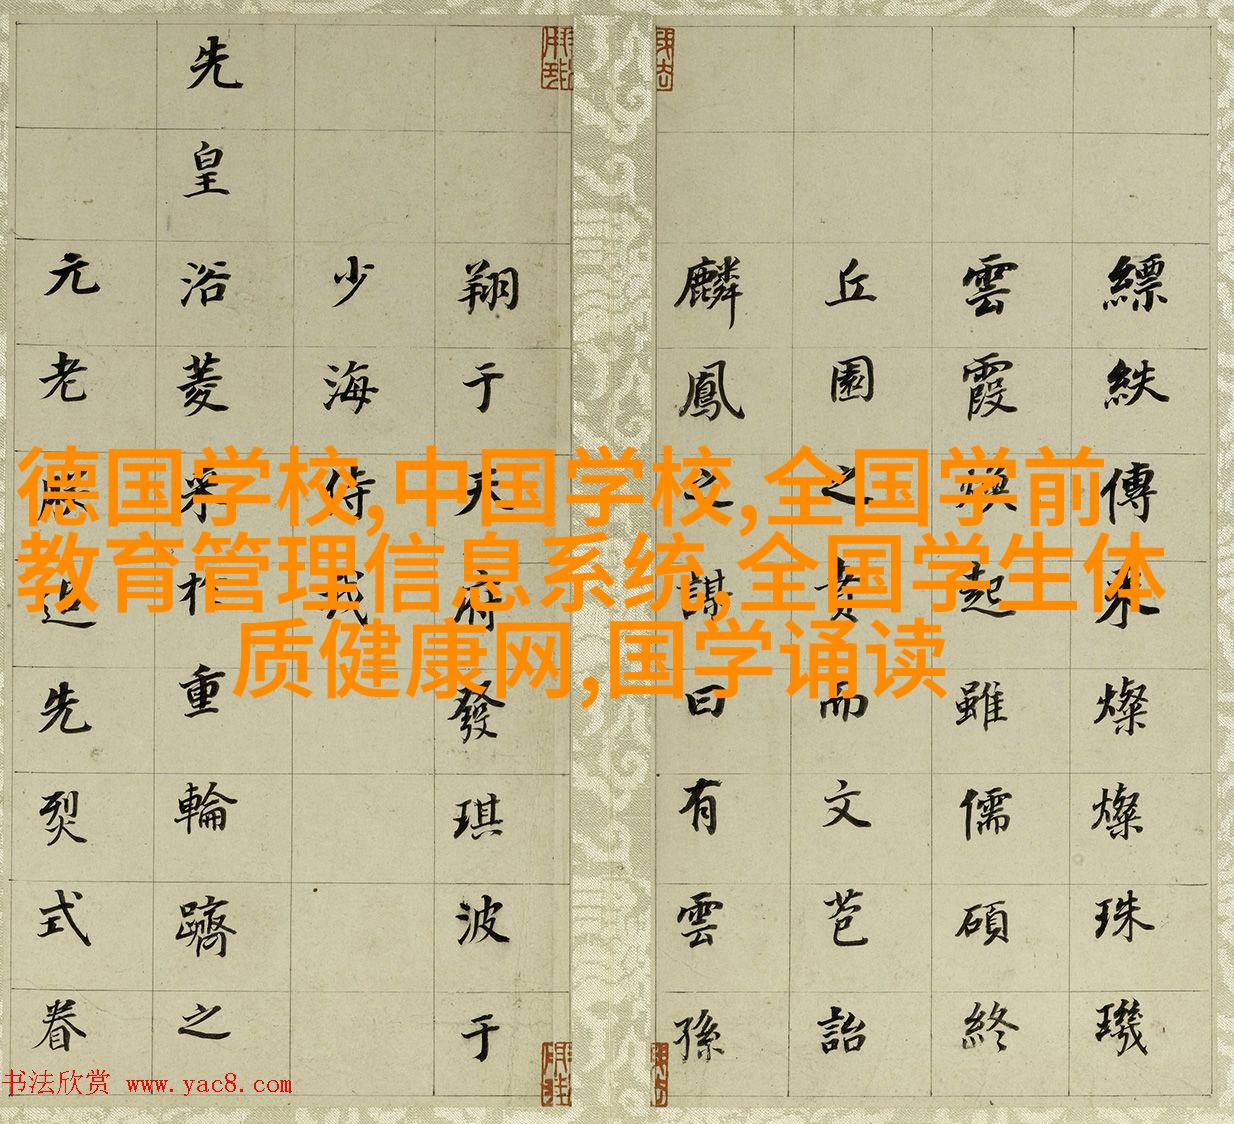 縹紩傳来燦燦珠璣
雲霞煥起雖儒碩終
丘園之貴而文苞詒
麟鳳之謀曰有雲孫
翔于天府發琪波于
少海侍我
先皇浴菱采重輪躋之
元老起先烈式眷
德国学校,中国学校,全国学前
教育管理信息系统,全国学生体
质健康网,国学诵读
书法欣赏 www.yac8.com